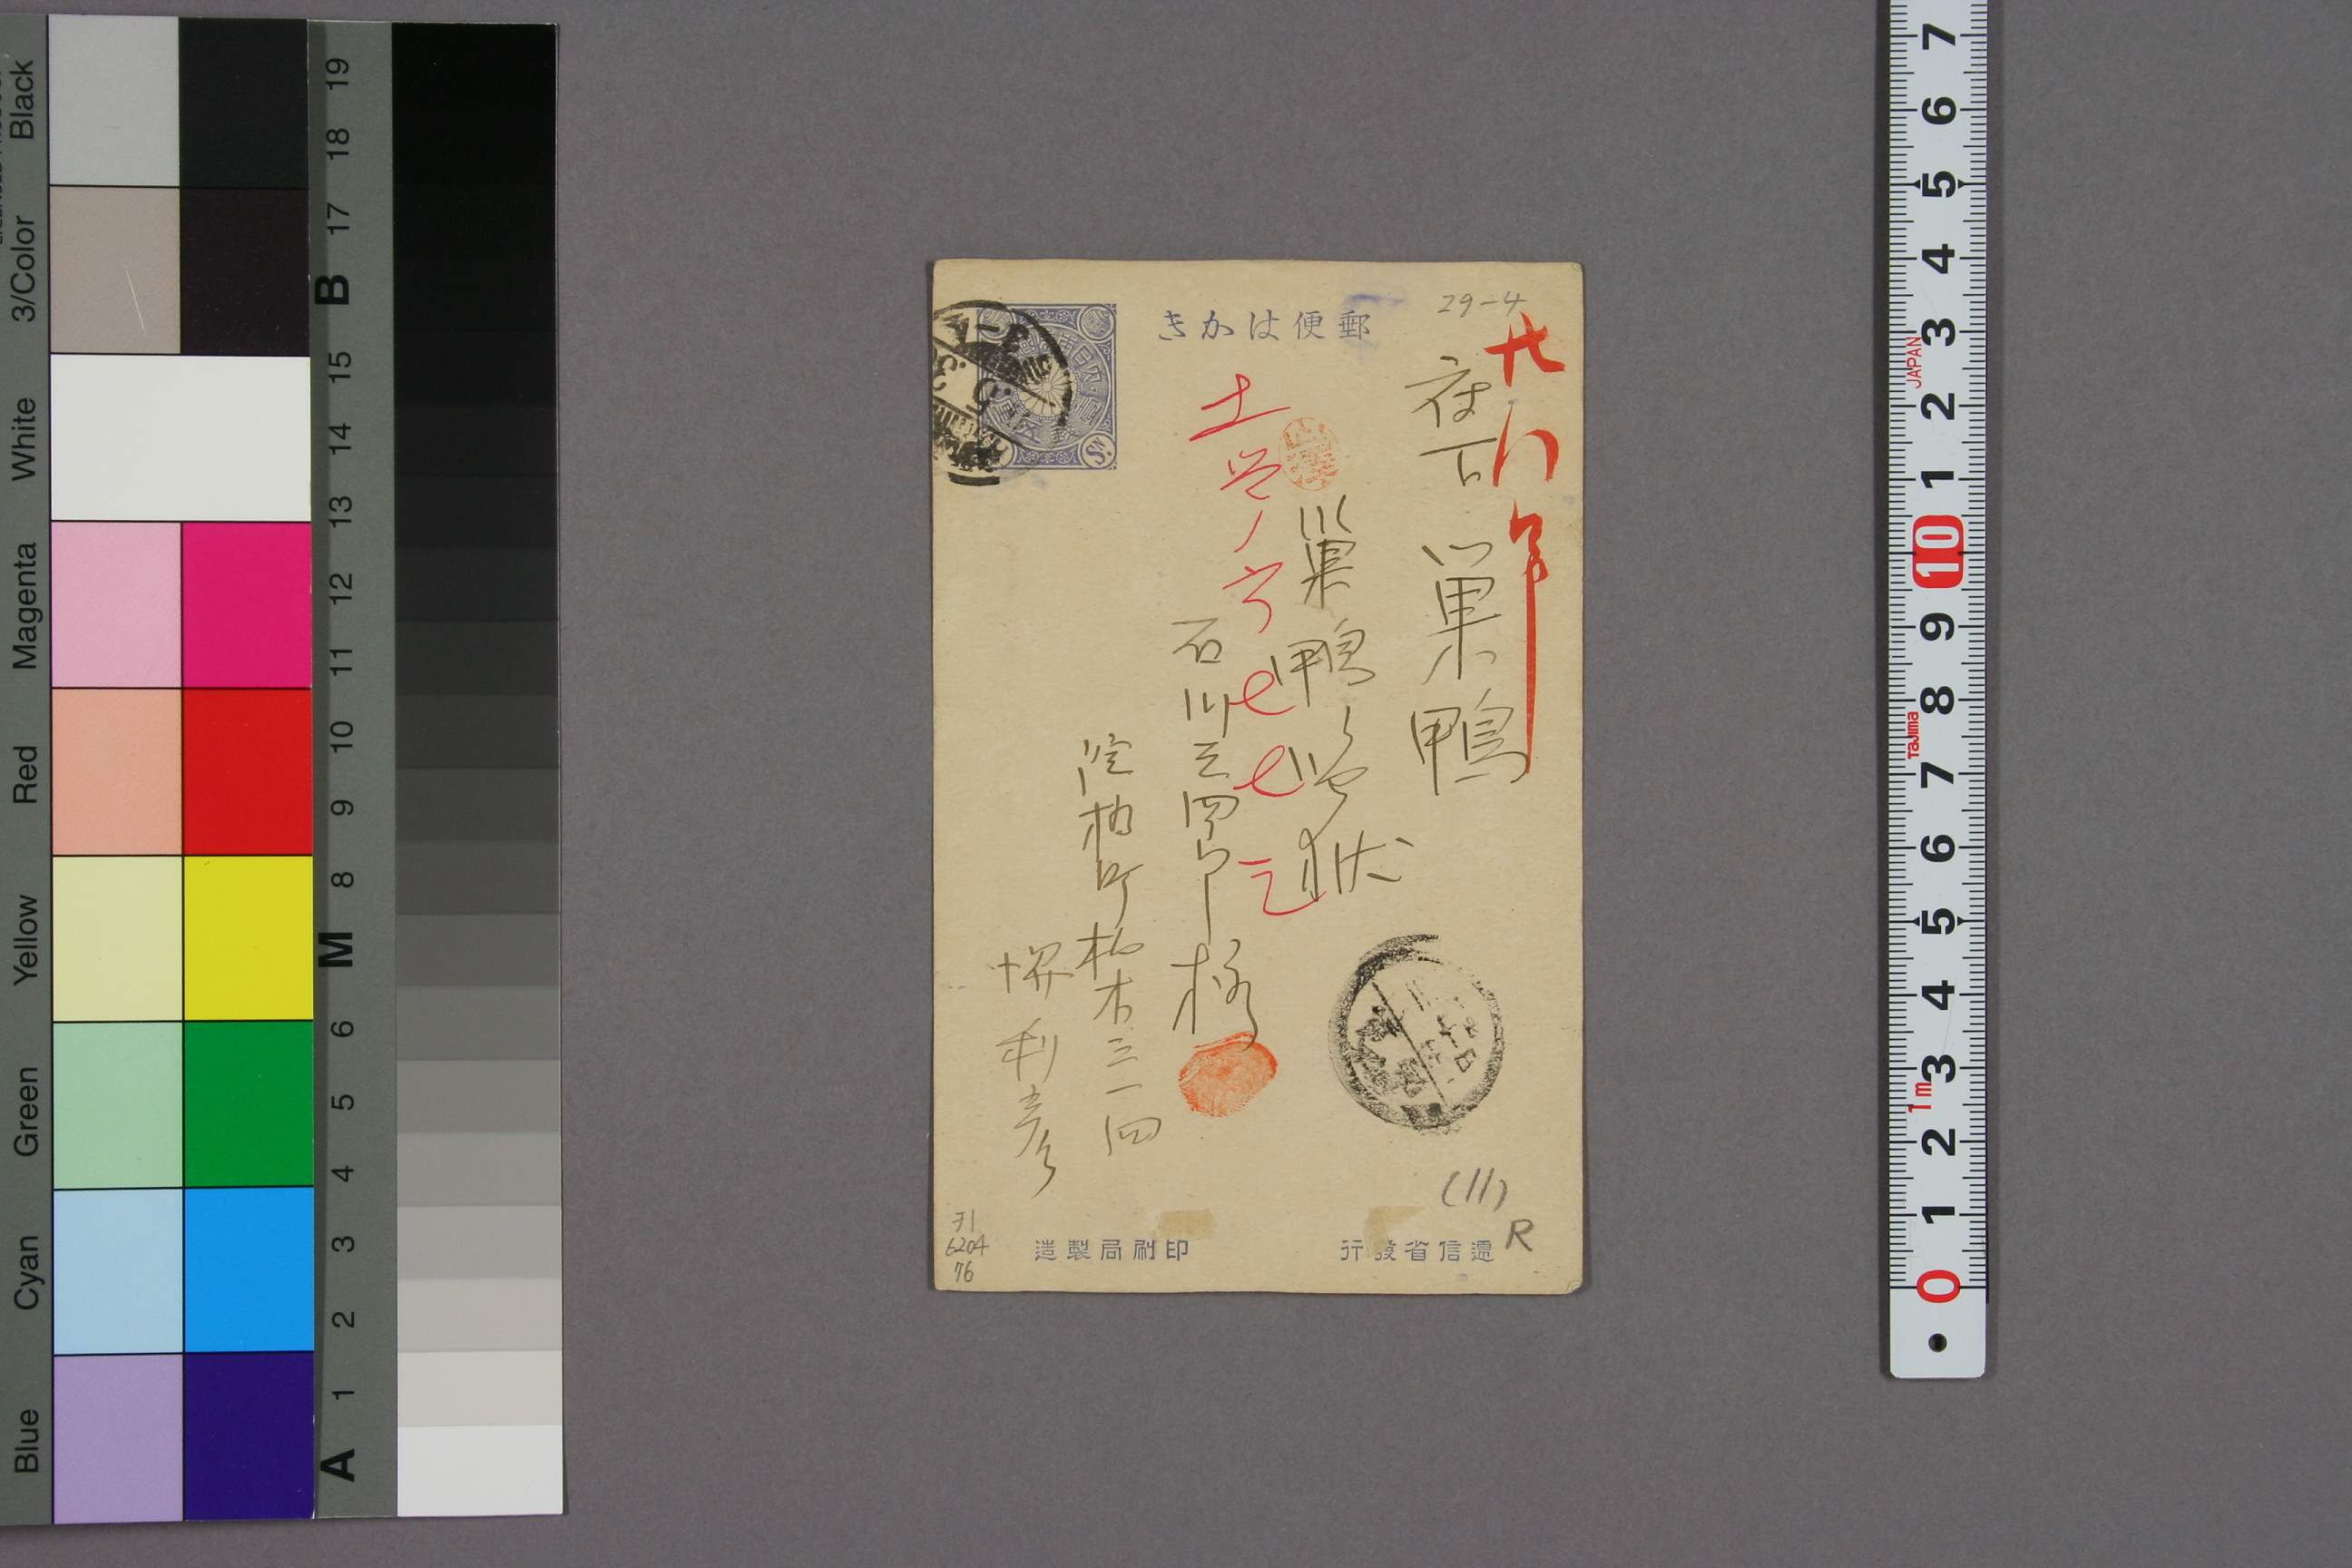 Black
3/Color
White
Magenta
Red
Yellow
Green
Cyan
Blue
19
18
17
B
15
14
13
12
11
10
9
8
M
6
5
4
3
2
1
A
郵便はかき
29-4
府下巣鴨
巣鴨監獄
石川三四郎様
淀橋町柏木三一四
堺利彦
(11)
R
ヲ1
6204
76
逓信省發行
印刷局製造
7
6
5
4
3
2
1
10
9
8
7
6
5
4
3
2
1
0
JAPAN
Tajima
1m